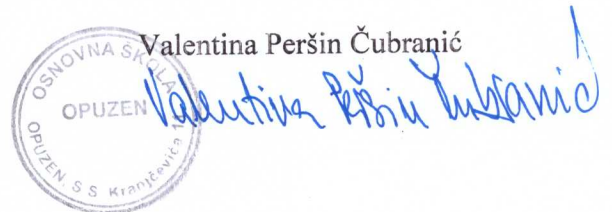 Valentina Peršin Čubranić
OSNOVNA ŠKOLA
OPUZEN
OPUZEN, S S Kranjčevića
Valentina Peršin Čubranić